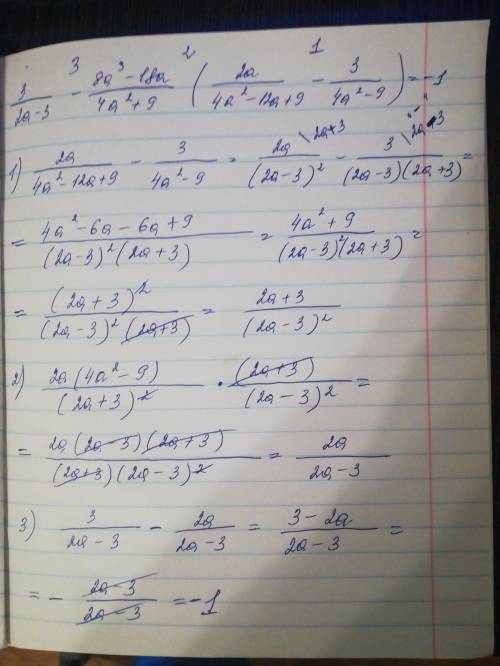 3 2 1
3/(2a-3) - (8a³-18a)/(4a²+9) (2a/(4a²-12a+9) - 3/(4a²-9)) = -1
1) 2a/(4a²-12a+9) - 3/(4a²-9) = 2a/(2a-3)² \2a+3 - 3/((2a-3)(2a+3)) \2a-3 =
= (4a²-6a-6a+9)/((2a-3)²(2a+3)) = (4a²+9)/((2a-3)²(2a+3)) =
= (2a+3)²/((2a-3)²(2a+3)) = (2a+3)/(2a-3)²
2) 2a(4a²-9)/(2a+3)² · (2a+3)/(2a-3)² =
= 2a(2a-3)(2a+3)/((2a+3)(2a-3)²) = 2a/(2a-3)
3) 3/(2a-3) - 2a/(2a-3) = (3-2a)/(2a-3) =
= - (2a-3)/(2a-3) = -1